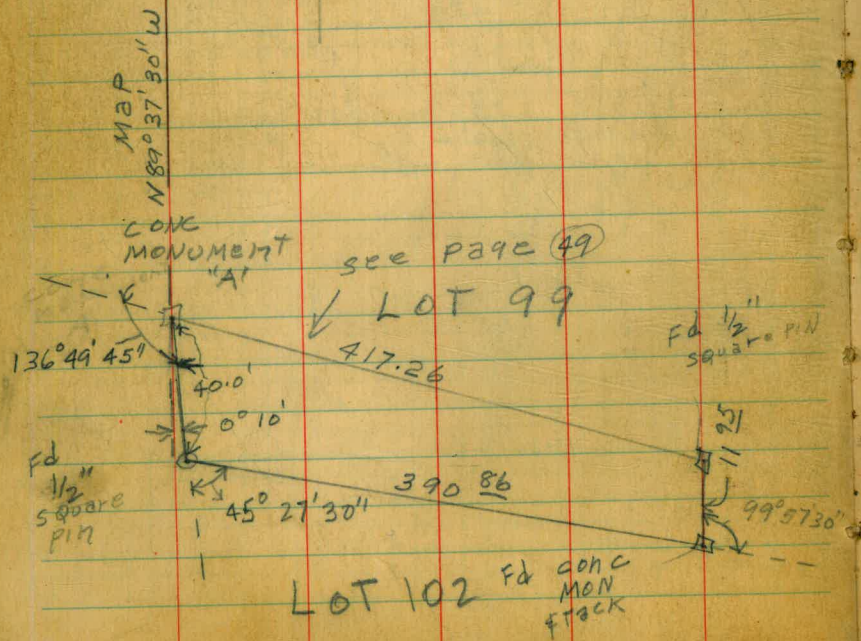 MAP
N 89° 37' 30" W
CONC
MONUMENT
"A"
see page 49
LOT 99
Fd 1/2"
square PIN
136° 49' 45"
417.26
40.0'
0° 10'
11 95
Fd
1/2"
square
PIN
45° 27' 30"
390 86
99° 57 30"
LOT 102
Fd conc
MON